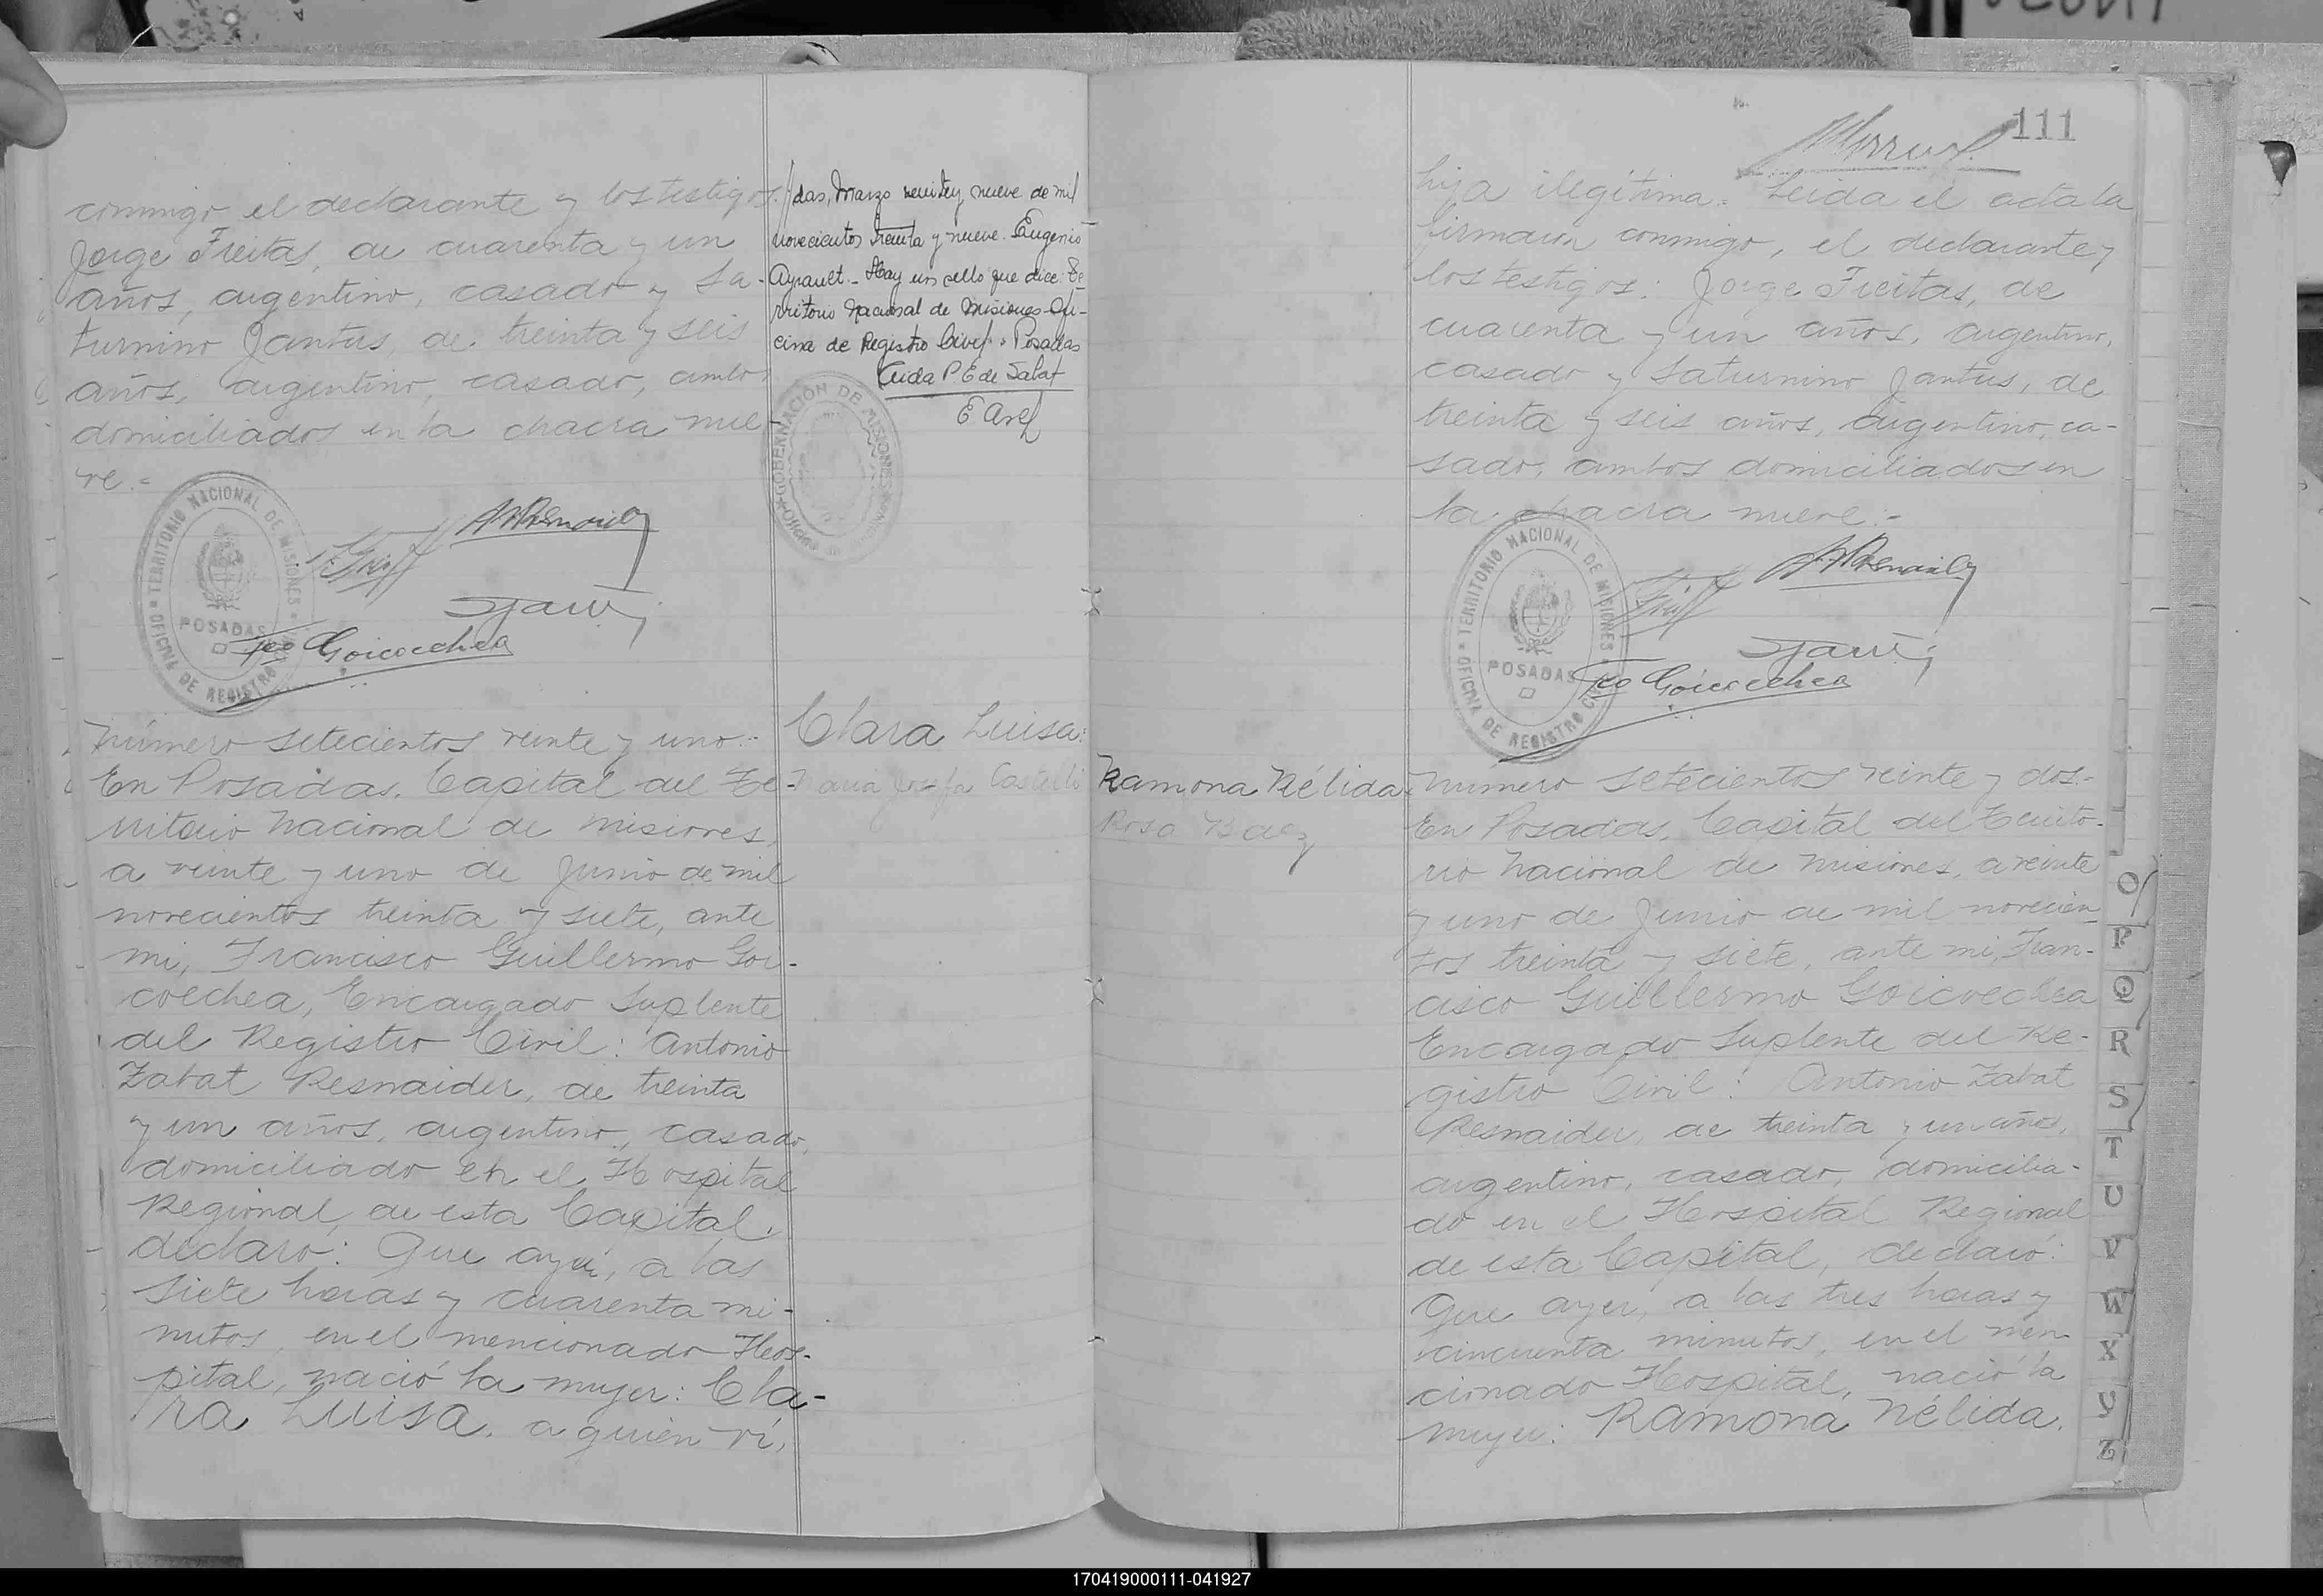 conmigo el declarante y los testigos:
Jorge Freitas, de cuarenta y un
años, argentino, casado y Sa-
turnino Jantus, de treinta y seis
años, argentino, casado, ambos
domiciliados en la chacra nue-
ve.=
TERRITORIO NACIONAL DE MISIONES
POSADAS
OFICINA DE REGISTRO CIVIL
Fco Goicoechea
//das, Marzo veinte y nueve de mil
novecientos treinta y nueve. Eugenio
Ayrault.- Hay un sello que dice: Te-
rritorio Nacional de Misiones-Ofi-
cina de Registro Civil. Posadas
GOBERNACIÓN DE MISIONES
número setecientos veinte y uno.-
En Posadas, Capital del Te-
rritorio Nacional de Misiones,
a veinte y uno de Junio de mil
novecientos treinta y siete, ante
mi, Francisco Guillermo Goi-
coechea, Encargado Suplente
del Registro Civil: Antonio
Zabat Resnaider, de treinta
y un años, argentino, casado,
domiciliado en el Hospital
Regional, de esta Capital,
declaró: Que ayer, a las
siete horas y cuarenta mi-
nutos, en el mencionado Hos-
pital, nació la mujer: Cla-
ra Luisa. a quien ví,
Clara Luisa:
María Josefa Castelli
111
hija ilegítima. Leida el acta la
firmaron conmigo, el declarante y
los testigos: Jorge Freitas, de
cuarenta y un años, argentino,
casado y Saturnino Jantus, de
treinta y seis años, argentino, ca-
sado, ambos domiciliados en
la chacra nueve.-
TERRITORIO NACIONAL DE MISIONES
POSADAS
OFICINA DE REGISTRO CIVIL
Fco Goicoechea
Ramona Nélida.
Rosa Baez
número setecientos veinte y dos.-
En Posadas, Capital del Territo-
rio Nacional de Misiones, a veinte
y uno de Junio de mil novecien-
tos treinta y siete, ante mi, Fran-
cisco Guillermo Goicoechea
Encargado Suplente del Re-
gistro Civil: Antonio Zabat
Resnaider, de treinta y un años,
argentino, casado, domicilia-
do en el Hospital Regional
de esta Capital, declaró:
Que ayer, a las tres horas y
cincuenta minutos, en el men-
cionado Hospital, nació la
mujer: Ramona Nélida.
O
P
Q
R
S
T
U
V
W
X
Y
Z
170419000111-041927